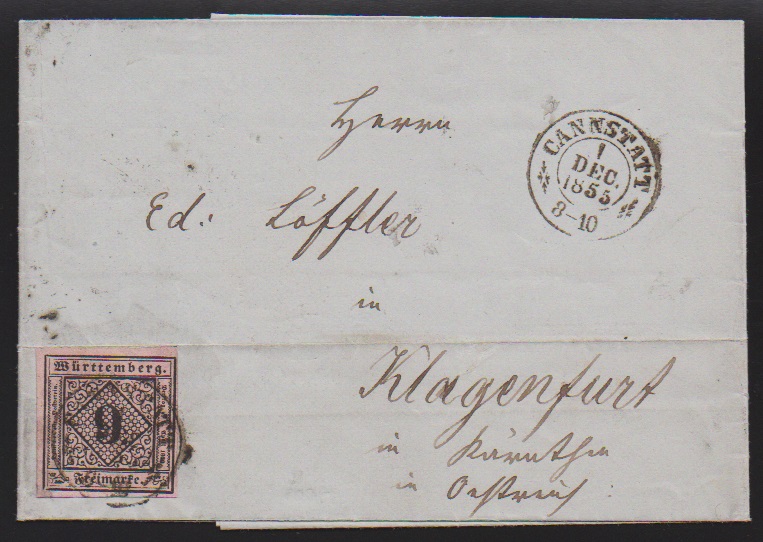 Herrn
CANNSTATT
1
DEC.
1855
8-10
Ed: Löffler
in
Klagenfurt
in Kärnthen
in Oestreich
Württemberg.
9
Freimarke.